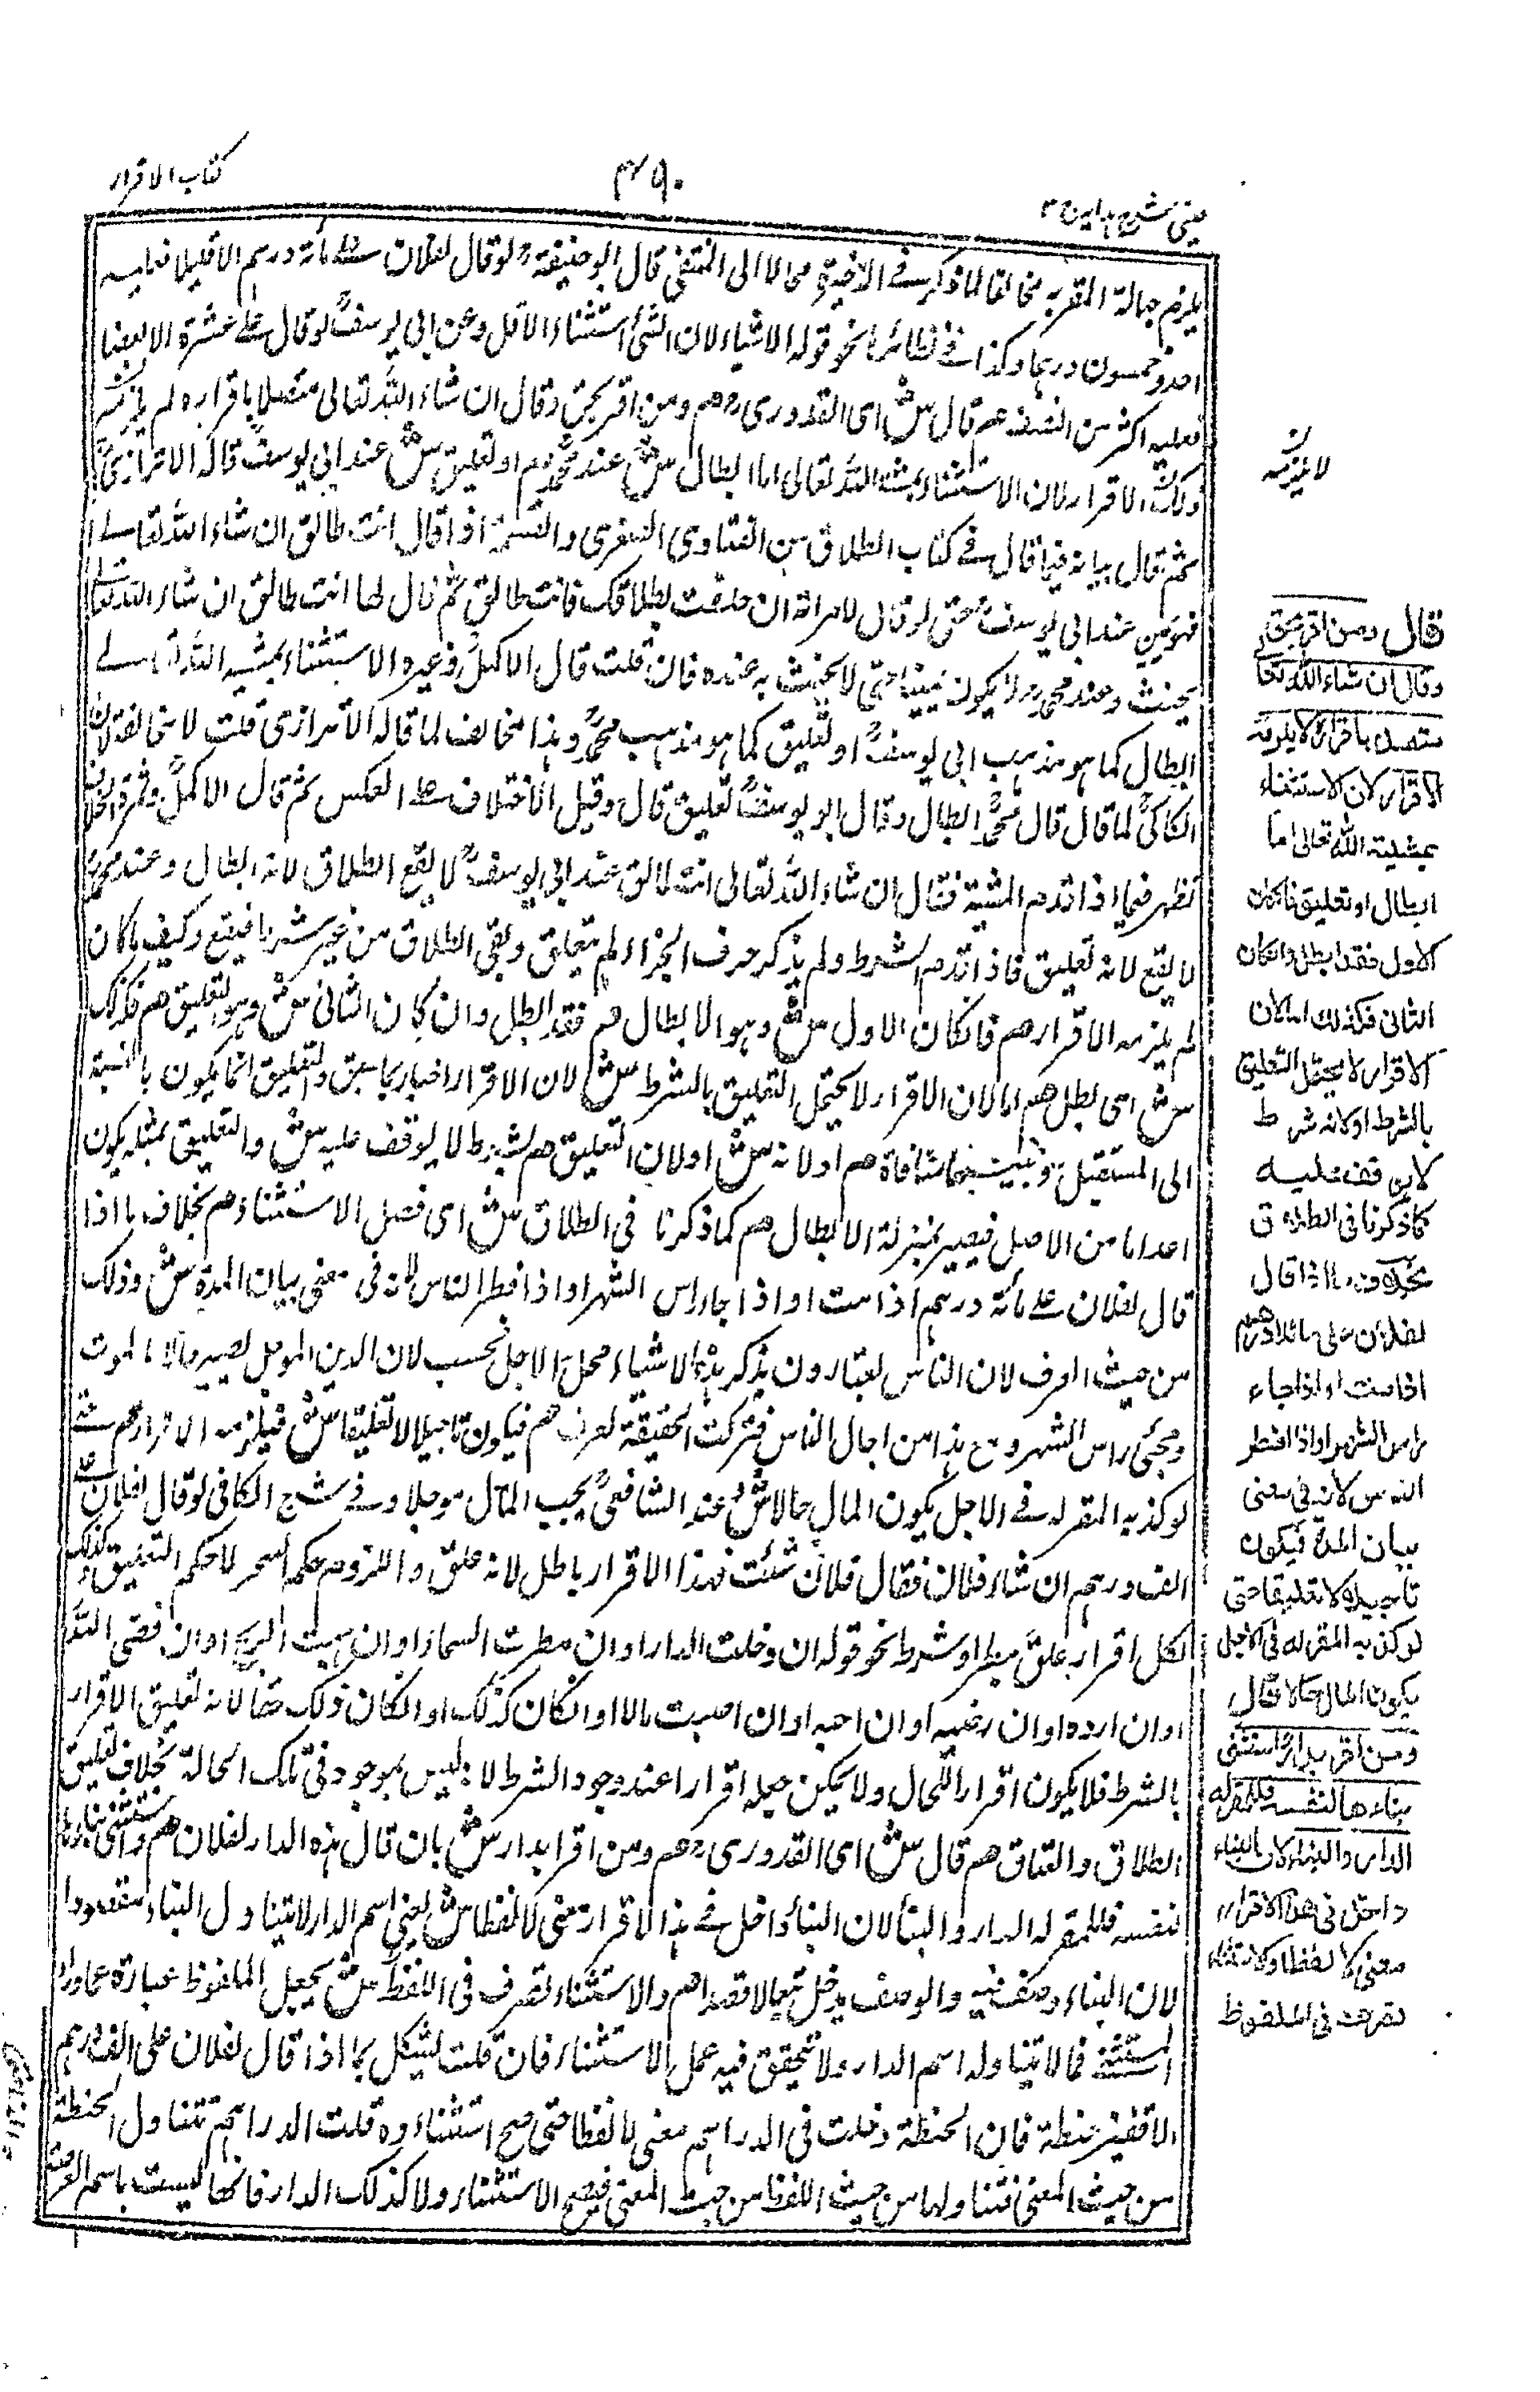 عینی شرح ہدایہ ج ۳
۴۹۰
کتاب الاقرار
یلزم جہالة المقر به مخالفا لما ذكر فى الذخيرة محالا الى المنتقى قال ابو حنيفةؒ لو قال لفلان على مائة درهم الا قليلا فعليه
احد وخمسون درهما وكذا فى نظائرها نحو قوله الا شيئا لان الشئ استثناء الاقل وعن ابى يوسفؒ لو قال على عشرة الا بعضها
فعليه اكثر من النصف هم قال ش اى القدورى رہ هم ومن اقر بحق وقال ان شاء الله تعالى متصلا باقراره لم يلزمه
ذلك الاقرار لان الاستثناء بمشية الله تعالى اما ابطال ش عند محمد هم او تعليق ش عند ابى يوسفؒ قاله الاترازىؒ
ثم قال بيانه فيما قال فى كتاب الطلاق من الفتاوى الصغرى والتتمة اذا قال انت طالق ان شاء الله تعالى
فهو يمين عند ابى يوسفؒ حتى لو قال لامراته ان حلفت بطلاقك فانت طالق ثم قال لها انت طالق ان شاء الله تعالى
يحنث وعند محمد رہ لا يكون يمينا حتى لا يحنث به عنده فان قلت قال الاكملؒ وغيره الاستثناء بمشية الله تعالى
ابطال كما هو مذهب ابى يوسفؒ او تعليق كما هو مذهب محمدؒ وهذا مخالف لما قاله الاترازى قلت لا مخالفة لان
الكاكىؒ لما قال قال محمدؒ ابطال وقال ابو يوسفؒ تعليق قال وقيل الاختلاف على العكس ثم قال الاكملؒ وثمرة الخلاف
تظهر فيما اذا قدم المشية فقال ان شاء الله تعالى انت طالق عند ابى يوسفؒ لا يقع الطلاق لانه ابطال وعند محمدؒ
لا يقع لانه تعليق فاذا قدم الشرط ولم يذكر حرف الجزاء لم يتعلق وبقى الطلاق من غير شرط فيقع وكيف ما كان
لم يلزمه الاقرار هم فان كان الاول ش وهو الابطال هم فقد ابطل وان كان الثانى ش وهو التعليق هم فكذلك
ش اى بطل هم اما لان الاقرار لا يحتمل التعليق بالشرط ش لان الاقرار اخبار بما سبق والتعليق انما يكون بالنسبة
الى المستقبل وبينهما منافاة هم او لانه ش اولان التعليق هم لشرط لا يوقف عليه ش والتعليق بمثله يكون
اعداما من الاصل فيصير بمنزلة الابطال هم كما ذكرنا فى الطلاق ش اى فصل الاستثناء هم بخلاف ما اذا
قال لفلان على مائة درهم اذا مت او اذا جاء راس الشهر او اذا فطر الناس لانه فى معنى بيان المدة ش وذلك
من حيث العرف لان الناس يعتادون بذكر هذه الاشياء محل الاجل فحسب لان الدين الموجل يصير حالا بالموت
ومجئ راس الشهر و هذا من اجال الناس فتركت الحقيقة للعرف هم فيكون تاجيلا لا تعليقا ش فيلزمه الاقرار هم حتى
لو كذبه المقر له فى الاجل يكون المال حالا ش وعند الشافعىؒ يجب المال موجلا وفى شرح الكافى لو قال لفلان على
الف درهم ان شاء فلان فقال فلان شئت فهذا الاقرار باطل لانه علق و اللزوم حكم التعليق وكذلك
لكل اقرار علق بخطر او شرط نحو قوله ان دخلت الدار او ان مطرت السماء او ان هبت الريح او ان قضى الله
او ان اراده او ان رضيه او ان احبه او ان اصبت مالا او ان كان كذلك او ان كان ذلك حقا لانه تعليق الاقرار
بالشرط فلا يكون اقرارا للحال ولا يمكن جعله اقرارا عند وجود الشرط لانه ليس بموجود فى تلك الحالة بخلاف تعليق
الطلاق والعتاق هم قال ش اى القدورى رہ هم ومن اقر بدار ش بان قال هذه الدار لفلان هم واستثنى بناءها
لنفسه فللمقر له الدار والبناء لان البناء داخل فى هذا الاقرار معنى لا لفظا ش يعنى اسم الدار لا يتناول البناء مقصودا
لان البناء وصف فيه والوصف يدخل تبعا لا قصدا هم والاستثناء تصرف فى اللفظ ش يجعل الملفوظ عبارة عما وراء
المستثنى فما لا يتناوله اسم الدار ولا يتحقق فيه عمل الاستثناء فان قلت يشكل بما اذا قال لفلان على الف درهم
الا قفيز حنطة فان الحنطة دخلت فى الدراهم معنى لا لفظا حتى صح استثناءه قلت الدراهم تتناول الحنطة
من حيث المعنى فتناولها من حيث اللفظ من حيث المعنى فيصح الاستثناء ولا كذلك الدار فانها ليست باسم العرصة
لا يلزمه
قال ومن اقر بحق
وقال ان شاء الله تعالى
متصلا باقراره لا يلزمه
الاقرار لان الاستثناء
بمشية الله تعالى اما
ابطال او تعليق فان كان
الاول فقد ابطل وان كان
الثانى فكذلك اما لان
الاقرار لا يحتمل التعليق
بالشرط او لانه شرط
لا يوقف عليه
كما ذكرنا فى الطلاق
بخلاف ما اذا قال
لفلان على مائة درهم
اذا مت او اذا جاء
راس الشهر او اذا افطر
الناس لانه فى معنى
بيان المدة فيكون
تاجيلا لا تعليقا حتى
لو كذبه المقر له فى الاجل
يكون المال حالا قال
ومن اقر بدار واستثنى
بناءها لنفسه فللمقر له
الدار والبناء لان البناء
داخل فى هذا الاقرار
معنى لا لفظا والاستثناء
تصرف فى الملفوظ